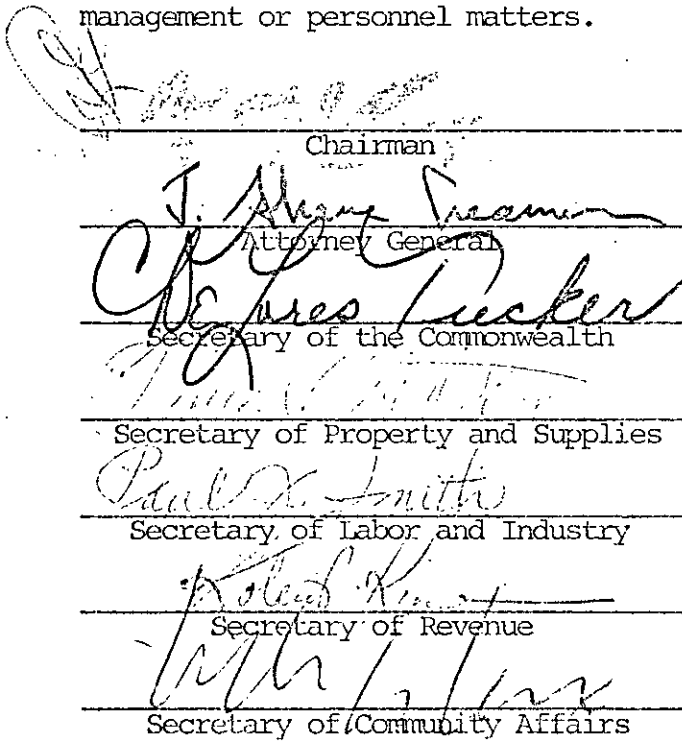 management or personnel matters.
Chairman
J. Shane Creamer
Attorney General
C DeLores Tucker
Secretary of the Commonwealth
Secretary of Property and Supplies
Paul J. Smith
Secretary of Labor and Industry
Robert Kane
Secretary of Revenue
Secretary of Community Affairs